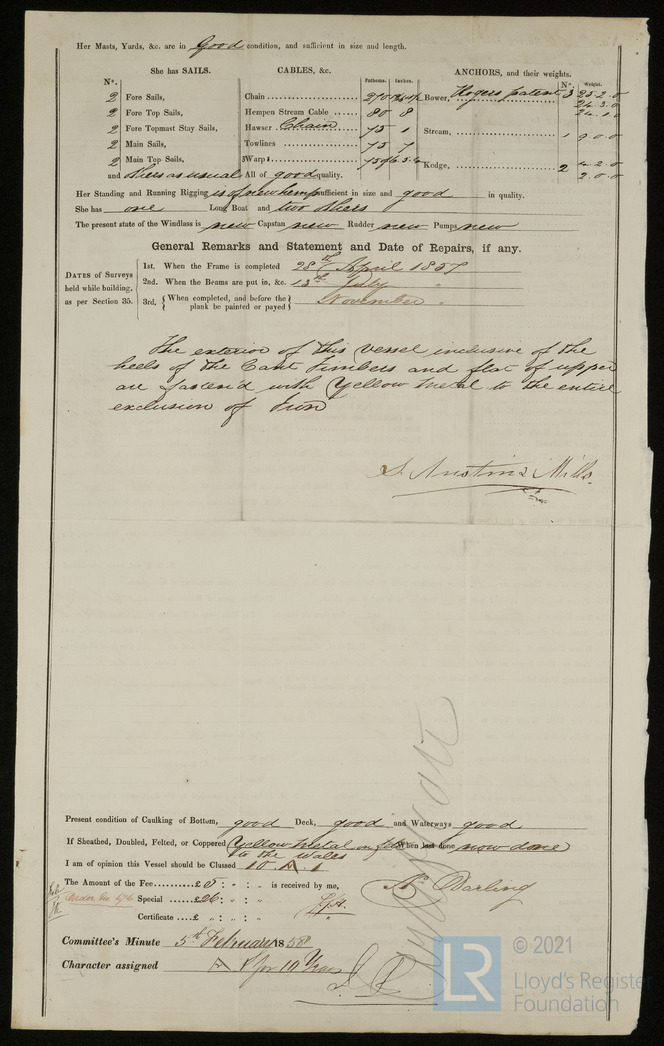 Her Masts, Yards, &c. are in Good condition, and sufficient in size and length.
She has SAILS.
N°.
2 Fore Sails,
2 Fore Top Sails,
2 Fore Topmast Stay Sails,
2 Main Sails,
2 Main Top Sails,
and others as usual
CABLES, &c.
Fathoms. Inches.
Chain 270
Hempen Stream Cable 80 8
Hawser Chain 75 1
Towlines 75 7
3 Warps 75
All of good quality.
ANCHORS, and their weights.
N°. Weight.
Bower, Rogers patent 3 25.2.0
24.3.0
24.1.0
Stream, 1 9.0.0
Kedge, 2 4.2.0
2.0.0
Her Standing and Running Rigging is of new hemp sufficient in size and good in quality.
She has one Long Boat and two others
The present state of the Windlass is new Capstan new Rudder new Pumps new
General Remarks and Statement and Date of Repairs, if any.
DATES of Surveys held while building, as per Section 35.
1st. When the Frame is completed 28th April 1857
2nd. When the Beams are put in, &c. 13th July "
3rd. { When completed, and before the plank be painted or payed } November "
The exterior of this vessel inclusive of the
heels of the Cant Timbers and flat of upper
are fastened with Yellow Metal to the entire
exclusion of Iron
S. Austin & Mills.
Present condition of Caulking of Bottom, good Deck, good and Waterways good
If Sheathed, Doubled, Felted, or Coppered Yellow Metal on felt When last done now done
to the Wales
I am of opinion this Vessel should be Classed 10. A. 1
The Amount of the Fee........£5 : " : " is received by me,
Special ......£26 : " : "
Certificate ....£ " : " : "
Darling
Committee's Minute 5th February 1858
Character assigned A 1 for 10 Years
© 2021
LR
Lloyd's Register
Foundation